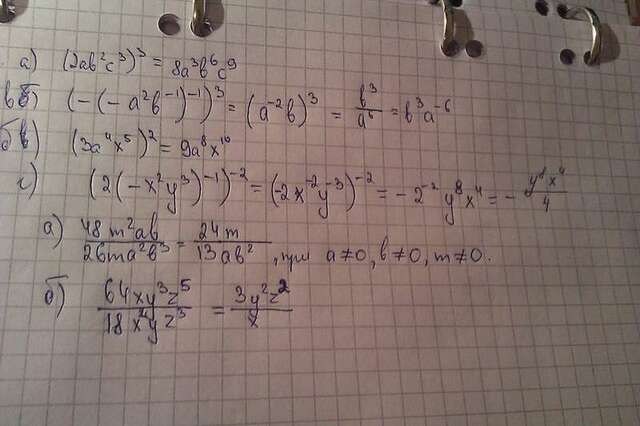 а) (2ab²c³)³ = 8a³b⁶c⁹
в б) (-(-a²b⁻¹)⁻¹)³ = (a⁻²b)³ = b³/a⁶ = b³a⁻⁶
б в) (3a⁴x⁵)² = 9a⁸x¹⁰
г) (2(-x²y³)⁻¹)⁻² = (-2x⁻²y⁻³)⁻² = -2⁻² y⁸x⁴ = - y⁸x⁴/4
а) 48m²ab/26ma²b³ = 24m/13ab², при a≠0, b≠0, m≠0.
б) 64xy³z⁵/18x²yz³ = 3y²z²/x